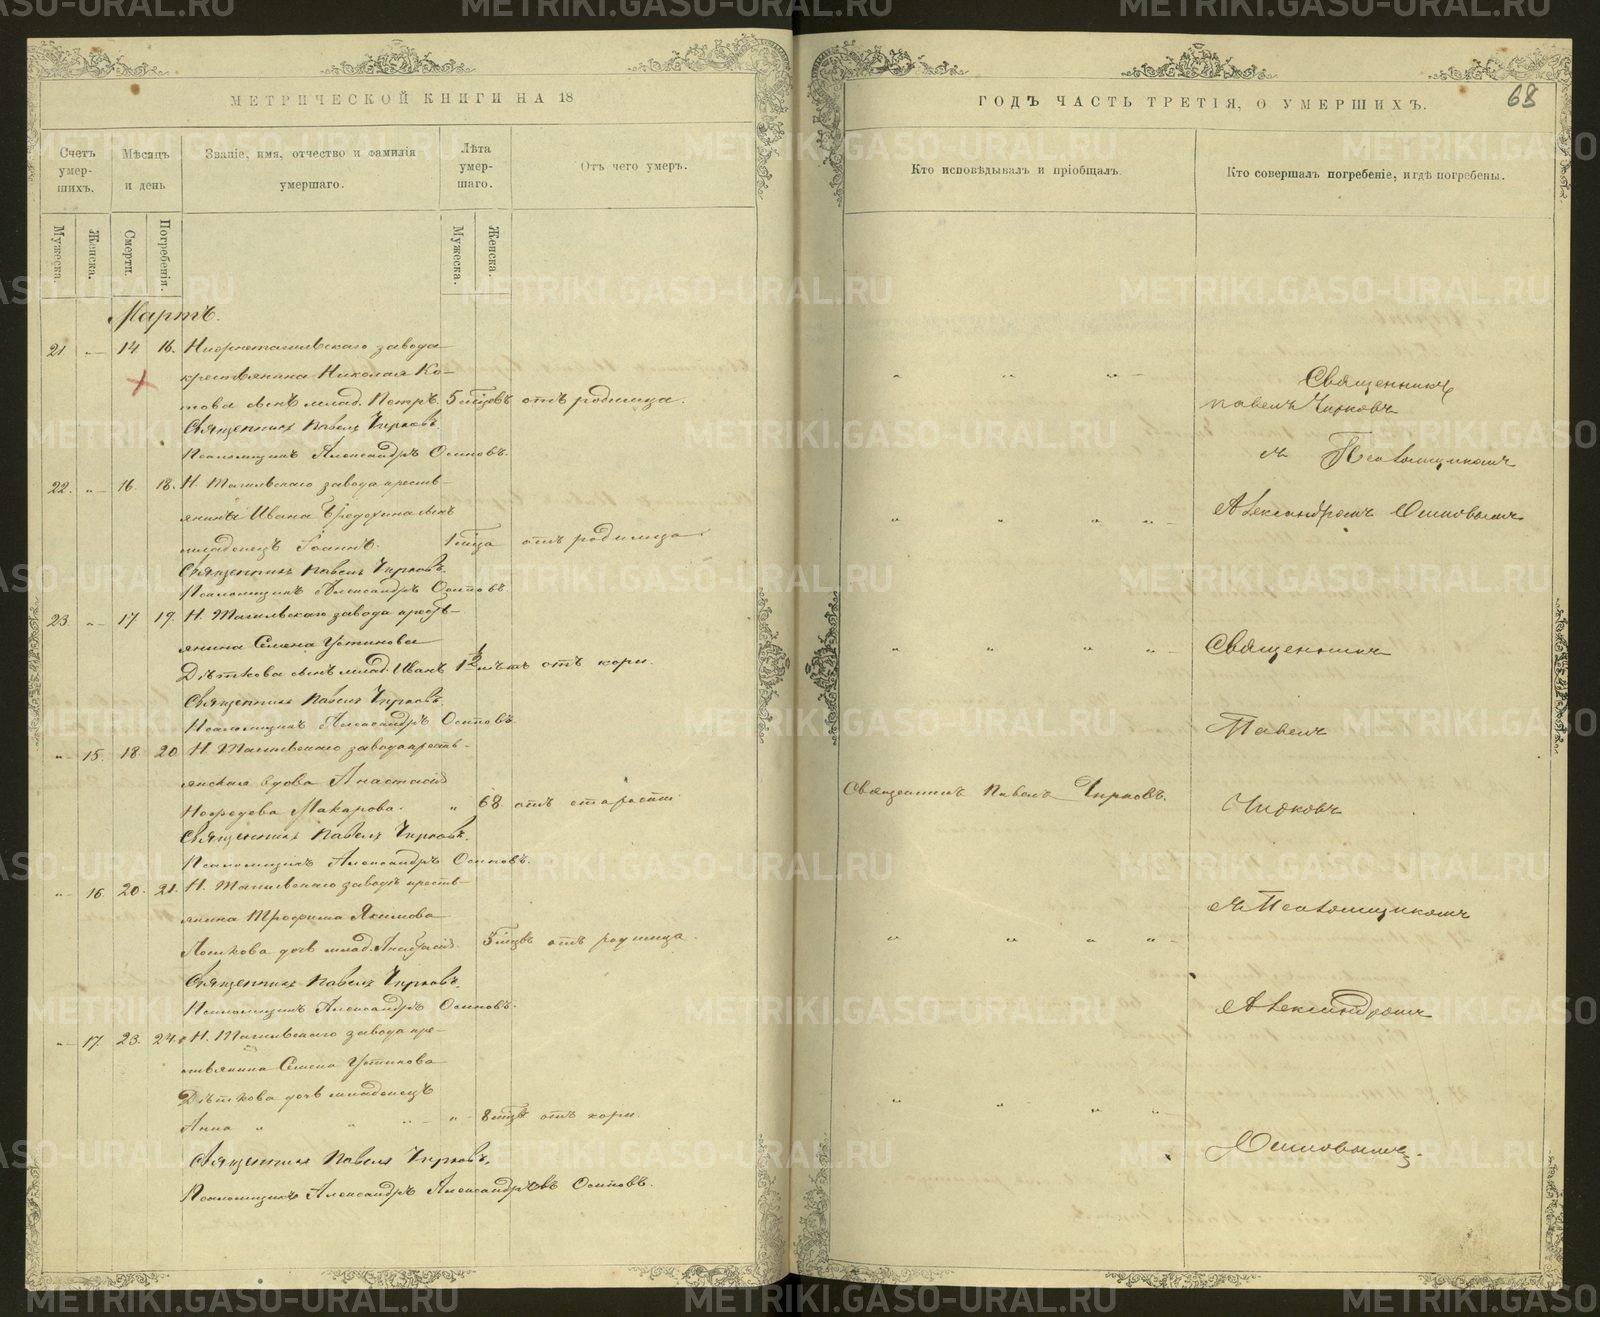 МЕТРИЧЕСКОЙ КНИГИ НА 18
Счетъ умер-шихъ.
Мѣсяцъ и день
Званіе, имя, отчество и фамилія умершаго.
Лѣта умер-шаго.
Отъ чего умеръ.
Мужеска.
Женска.
Смерти.
Погребенія.
Мужеска.
Женска.
Мартъ.
21 „ 14 16. Нижнетагильскаго завода
крестьянина Николая Ко-
това сынъ млад. Петръ. 5 мѣсцовъ отъ родимца.
Священникъ Павелъ Чирковъ.
Псаломщикъ Александръ Осиповъ.
22. „ 16. 18. Н. Тагильскаго завода кресть-
янина Ивана сынъ
младенецъ Іоаннъ. 1 мѣца отъ родимца.
Священникъ Павелъ Чирковъ.
Псаломщикъ Александръ Осиповъ
23. „ 17. 19. Н. Тагильскаго завода кресть-
янина Семена Устинова
Дѣткова сынъ млад. Иванъ 1 1/2 отъ кори.
Священникъ Павелъ Чирковъ.
Псаломщикъ Александръ Осиповъ.
„ 15. 18. 20. Н. Тагильскаго завода кресть-
янская вдова Анастасія
Макарова. „ 68 отъ старости
Священникъ Павелъ Чирковъ.
Псаломщикъ Александръ Осиповъ.
„ 16. 20. 21. Н. Тагильскаго завода кресть-
янина Трофима Якимова
дочь млад. Анастасія. 5 мѣцвъ отъ родимца.
Священникъ Павелъ Чирковъ.
Псаломщикъ Александръ Осиповъ.
„ 17. 23. 24. Н. Тагильскаго завода кре-
стьянина Семена Устинова
Дѣткова дочь младенецъ
Анна „ „ „ „ 8 мѣцвъ отъ кори.
Священникъ Павелъ Чирковъ.
Псаломщикъ Александръ Александровъ Осиповъ.
ГОДЪ ЧАСТЬ ТРЕТІЯ, О УМЕРШИХЪ.
68
Кто исповѣдывалъ и пріобщалъ.
Кто совершалъ погребеніе, и гдѣ погребены.
„ „ „ „
Священникъ
Павелъ Чирковъ
съ Псаломщикомъ
Александромъ Осиповымъ
Священникъ
Павелъ
Священникъ Павелъ Чирковъ.
Чирковъ
съ Псаломщикомъ
Александромъ
Осиповымъ.
METRIKI.GASO-URAL.RU